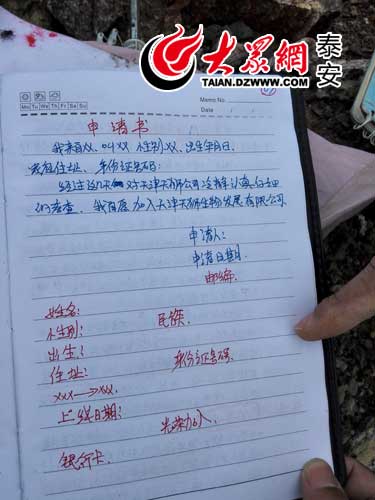 大众網
泰安
TAIAN.DZWWW.COM
Mo Tu We Th Fr Sa Su
Memo No.
Date
申请书
我来自XX、叫XX 性别XX、出生年月日、
家庭住址、身份证号码：
经过这几天对天津天狮公司
的考查，我自愿加入天津天狮生物发展有限公司
申请人：
申请日期：
邮编：
姓名：
性别： 民族：
出生：
住址： 身份证号码：
XXX→XX
上线日期：
光荣加入
银行卡